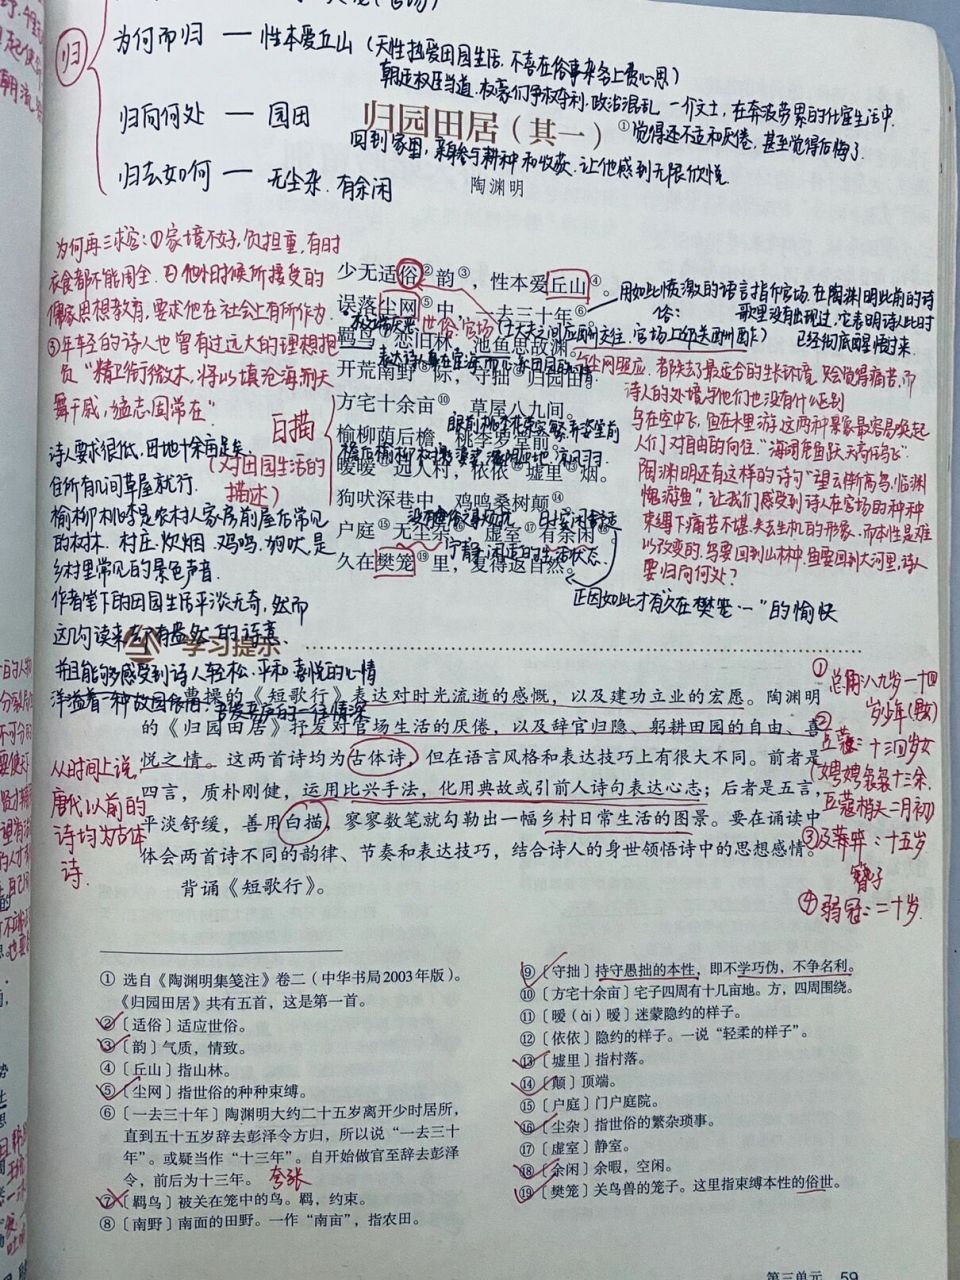 归
为何而归 — 性本爱丘山（天性热爱田园生活，不喜在俗事杂务上费心思）
朝廷权臣当道，权豪们争权夺利，政治混乱，一介文士，在奔波劳累的仕宦生活中，
觉得还不适和厌倦，甚至觉得后悔了．
归向何处 — 园田
回到家里，亲自参与耕种和收获，让他感到无限欣悦
归去如何 — 无尘杂．有余闲
归园田居（其一）①
陶渊明
为何再三求官：①家境不好，负担重，有时
衣食都不能周全．②他小时候所接受的
儒家思想教育，要求他在社会上有所作为．
③年轻的诗人也曾有过远大的理想抱
负“精卫衔微木，将以填沧海，刑天
舞干戚，猛志固常在”
少无适俗②韵③，性本爱丘山④。
误落尘网⑤中，一去三十年⑥。
羁鸟⑦恋旧林，池鱼思故渊。
开荒南野⑧际，守拙⑨归园田。
方宅十余亩⑩，草屋八九间。
榆柳荫后檐，桃李罗堂前。
暧暧⑪远人村，依依⑫墟里⑬烟。
狗吠深巷中，鸡鸣桑树颠⑭。
户庭⑮无尘杂⑯，虚室⑰有余闲⑱。
久在樊笼⑲里，复得返自然。
世俗，官场
白描
（对田园生活的
描述）
宁静、闲适的生活状态．
正因如此才有“久在樊笼…”的愉快
用如此愤激的语言指斥官场，在陶渊明此前的诗
歌里没有出现过，它表明诗人此时
已经彻底醒悟过来．
都失去了最适合的生长环境，只会觉得痛苦，而
诗人的处境与他们也没有什么区别
鸟在空中飞，鱼在水里游，这两种景象最容易唤起
人们对自由的向往．“海阔凭鱼跃，天高任鸟飞”．
陶渊明还有这样的诗句“望云惭高鸟，临渊
愧游鱼”，让我们感受到诗人在官场的种种
束缚下痛苦不堪、失去生机的形象，而本性是难
以改变的，鸟要回到山林中，鱼要回到大河里，诗人
要归向何处？
诗人要求很低，田地十余亩足矣．
住所有几间草屋就行．
榆柳桃李是农村人家房前屋后常见
的树木．村庄．炊烟．鸡鸣．狗吠，是
乡村里常见的景色声音．
作者笔下的田园生活平淡无奇，然而
这几句读来却有盎然的诗意．
并且能够感受到诗人轻松、平和喜悦的心情
学习提示
曹操的《短歌行》表达对时光流逝的感慨，以及建功立业的宏愿。陶渊明
的《归园田居》抒发对官场生活的厌倦，以及辞官归隐、躬耕田园的自由、喜
悦之情。这两首诗均为古体诗，但在语言风格和表达技巧上有很大不同。前者是
四言，质朴刚健，运用比兴手法，化用典故或引前人诗句表达心志；后者是五言，
平淡舒缓，善用白描，寥寥数笔就勾勒出一幅乡村日常生活的图景。要在诵读中
体会两首诗不同的韵律、节奏和表达技巧，结合诗人的身世领悟诗中的思想感情。
背诵《短歌行》。
从时间上说，
唐代以前的
诗均为古体
诗．
①总角：八九岁—十四
岁少年（男女）
②豆蔻：十三四岁女
（娉娉袅袅十三余，
豆蔻梢头二月初）
③及笄：十五岁
簪子
④弱冠：二十岁．
① 选自《陶渊明集笺注》卷二（中华书局2003年版）。
《归园田居》共有五首，这是第一首。
②〔适俗〕适应世俗。
③〔韵〕气质，情致。
④〔丘山〕指山林。
⑤〔尘网〕指世俗的种种束缚。
⑥〔一去三十年〕陶渊明大约二十五岁离开少时居所，
直到五十五岁辞去彭泽令方归，所以说“一去三十
年”。或疑当作“十三年”。自开始做官至辞去彭泽
令，前后为十三年。 夸张
⑦〔羁鸟〕被关在笼中的鸟。羁，约束。
⑧〔南野〕南面的田野。一作“南亩”，指农田。
⑨〔守拙〕持守愚拙的本性，即不学巧伪，不争名利。
⑩〔方宅十余亩〕宅子四周有十几亩地。方，四周围绕。
⑪〔暧（ài）暧〕迷蒙隐约的样子。
⑫〔依依〕隐约的样子。一说“轻柔的样子”。
⑬〔墟里〕指村落。
⑭〔颠〕顶端。
⑮〔户庭〕门户庭院。
⑯〔尘杂〕指世俗的繁杂琐事。
⑰〔虚室〕静室。
⑱〔余闲〕余暇，空闲。
⑲〔樊笼〕关鸟兽的笼子。这里指束缚本性的俗世。
第三单元 59